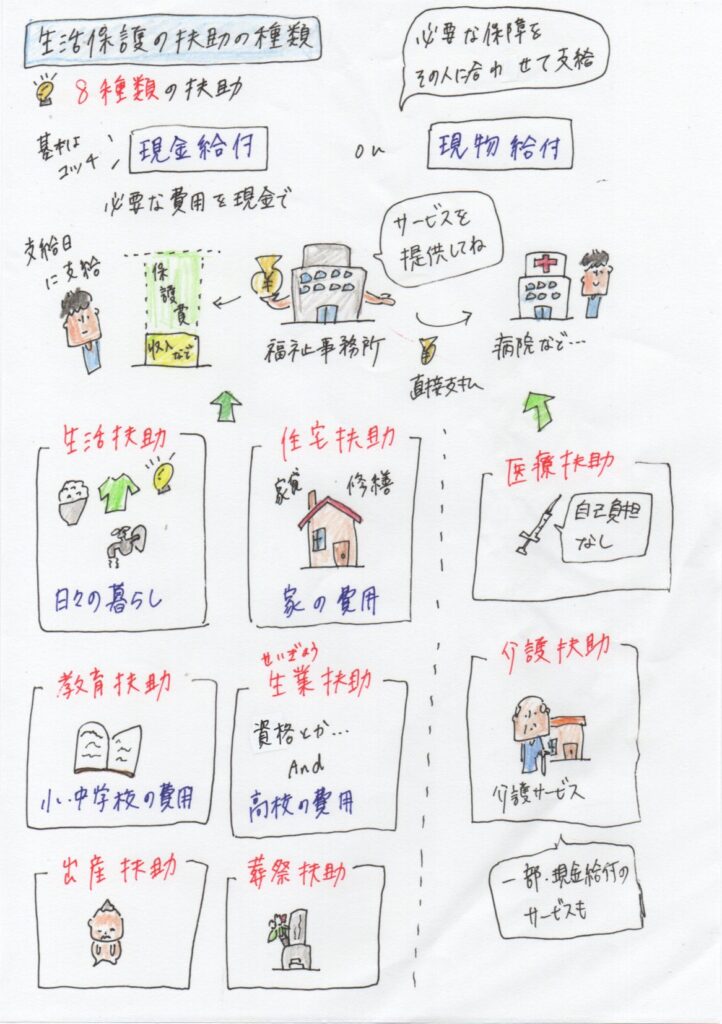 生活保護の扶助の種類
必要な保障を
その人に合わせて支給
8種類の扶助
基本は
コッチ
現金給付
or
現物給付
必要な費用を現金で
支給日
に支給
保護費
収入など
サービスを
提供してね
¥
福祉事務所
¥
直接支払
病院など…
生活扶助
日々の暮らし
住宅扶助
家賃
修繕
家の費用
医療扶助
自己負担
なし
教育扶助
小・中学校の費用
せいぎょう
生業扶助
資格とか…
And
高校の費用
介護扶助
介護サービス
一部・現金給付の
サービスも
出産扶助
葬祭扶助